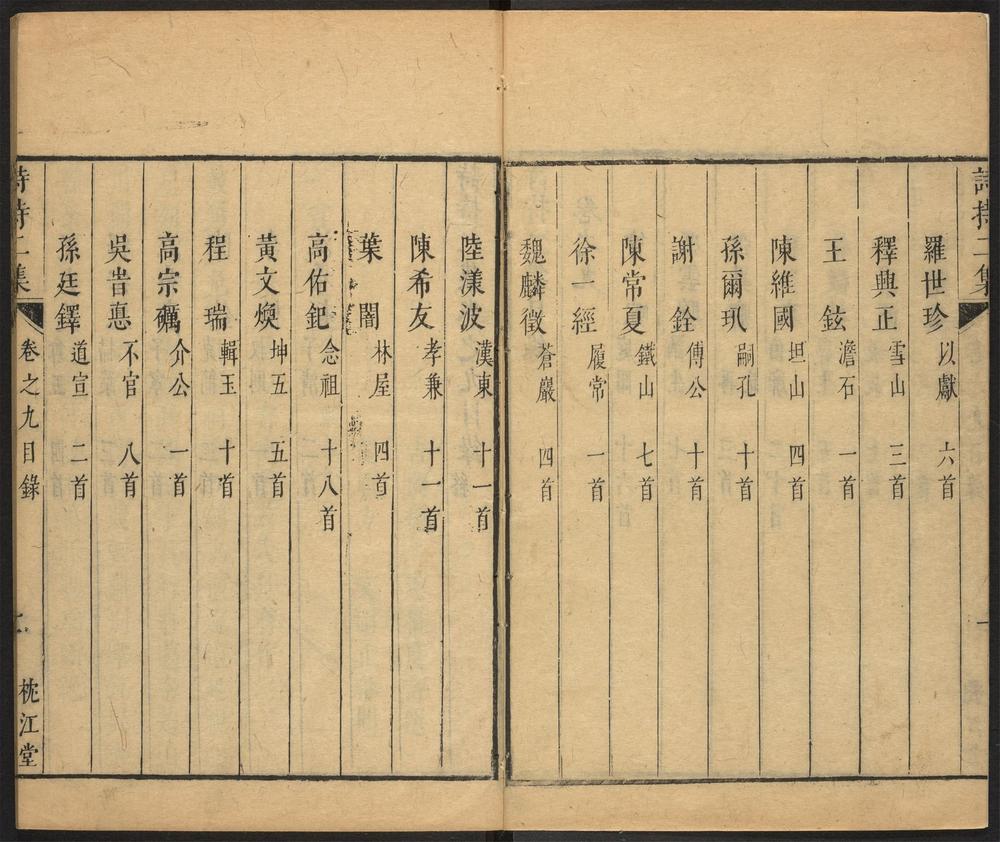 詩持二集 一
羅世珍 以獻 六首
釋興正 雪山 三首
王鉉 澹石 一首
陳維國 坦山 四首
孫爾玐 嗣孔 十首
謝銓 傅公 十首
陳常夏 鐵山 七首
徐一經 履常 一首
魏麟徵 蒼巖 四首
陸漾波 漢東 十一首
陳希友 孝兼 十一首
葉闇 林屋 四首
高佑釲 念祖 十八首
黃文煥 坤五 五首
程瑞 輯玉 十首
高宗礪 介公 一首
吳旹悳 不官 八首
孫廷鐸 道宣 二首
詩持二集 卷之九目錄 二 枕江堂